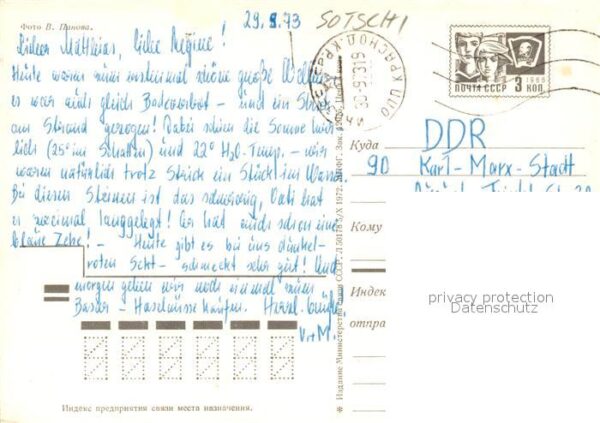 Фото В. Панова.
29.9.73
SOTSCHI
Lieber Matthias, liebe Regine!
Heute waren zum erstenmal schöne große Wellen
es war auch gleich Badeverbot - und ein Strick
am Strand gezogen! Dabei schien die Sonne
lich (25° im Schatten) und 22° H₂O-Temp. - wir
waren natürlich trotz Strick ein Stück im Wasser
Bei diesen Steinen ist das schwierig, Vati hat
es zweimal langgelegt! Er hat auch schon eine
blaue Zehe! - Heute gibt es bei uns dunkel-
roten Sekt - schmeckt sehr gut! Und
morgen gehen wir noch einmal zum
Basar - Haselnüsse kaufen. Herzl. Grüße
V.+M.
ПОЧТА СССР
3 КОП.
1966
Куда
DDR
90 Karl-Marx-Stadt
Кому
Индек
отпра
privacy protection
Datenschutz
Индекс предприятия связи места назначения.
* Издание Министерства связи СССР.